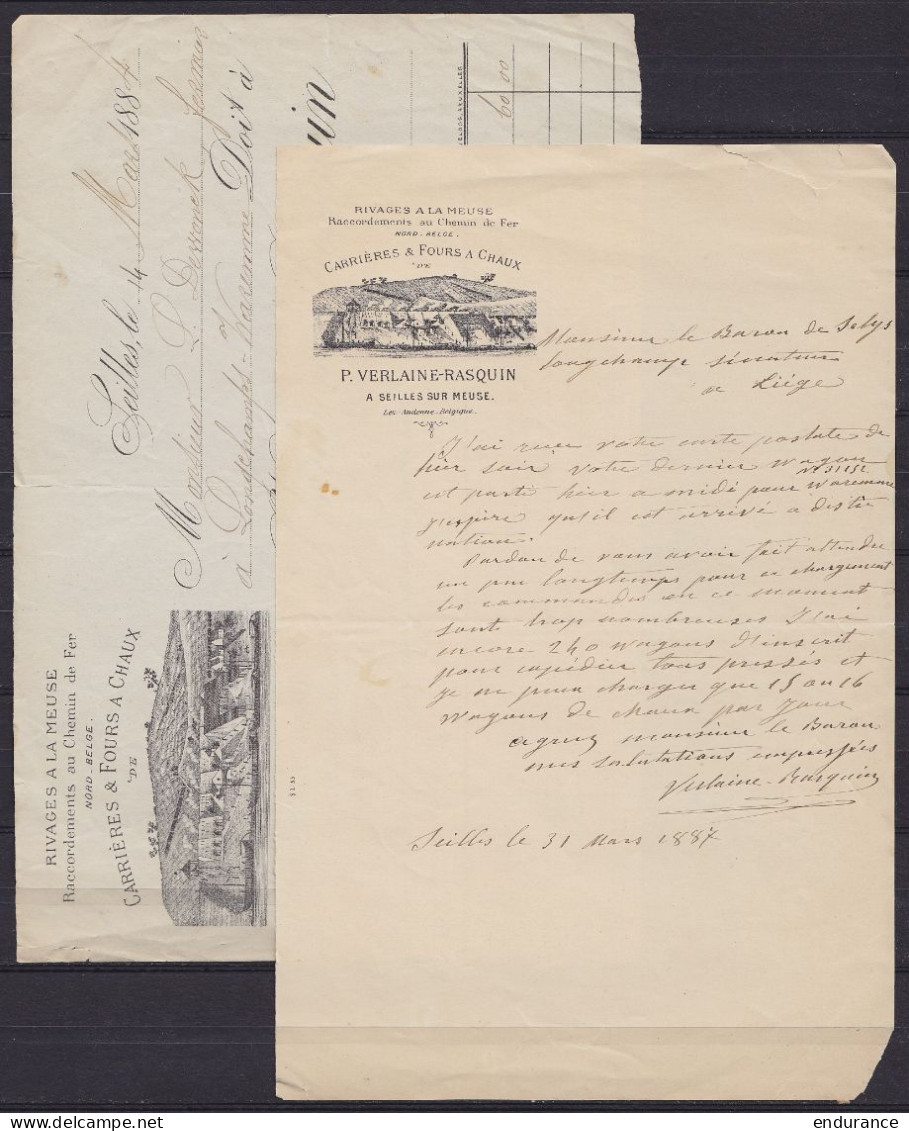 RIVAGES A LA MEUSE
Raccordements au Chemin de Fer
NORD-BELGE.
CARRIÈRES & FOURS A CHAUX
DE
Seilles, le 14 Mars 1884
Monsieur L. Dessanek fermier
à Longchamps-Waremme Doit à
uin
60 00
RIVAGES A LA MEUSE
Raccordements au Chemin de Fer
NORD-BELGE.
CARRIÈRES & FOURS A CHAUX
DE
P. VERLAINE-RASQUIN
A SEILLES SUR MEUSE.
Lez-Andenne-Belgique.
Monsieur le Baron de Selys
Longchamps sénateur
a Liége
J'ai reçu votre carte postale de
hier soir votre dernier wagon
N° 31152
est parti hier a midi pour Waremme
j'espère qu'il est arrivé a desti
nation.
Pardon de vous avoir fait attendre
un peu longtemps pour ce chargement
les commandes en ce moment
sont trop nombreuses J'ai
encore 240 wagons d'inscrit
pour expédier tous pressés et
je ne peux charger que 15 ou 16
wagons de chaux par jour
agréez monsieur le Baron
mes salutations empressées
Verlaine-Rasquin
Seilles le 31 Mars 1884
endurance
delcampe.net